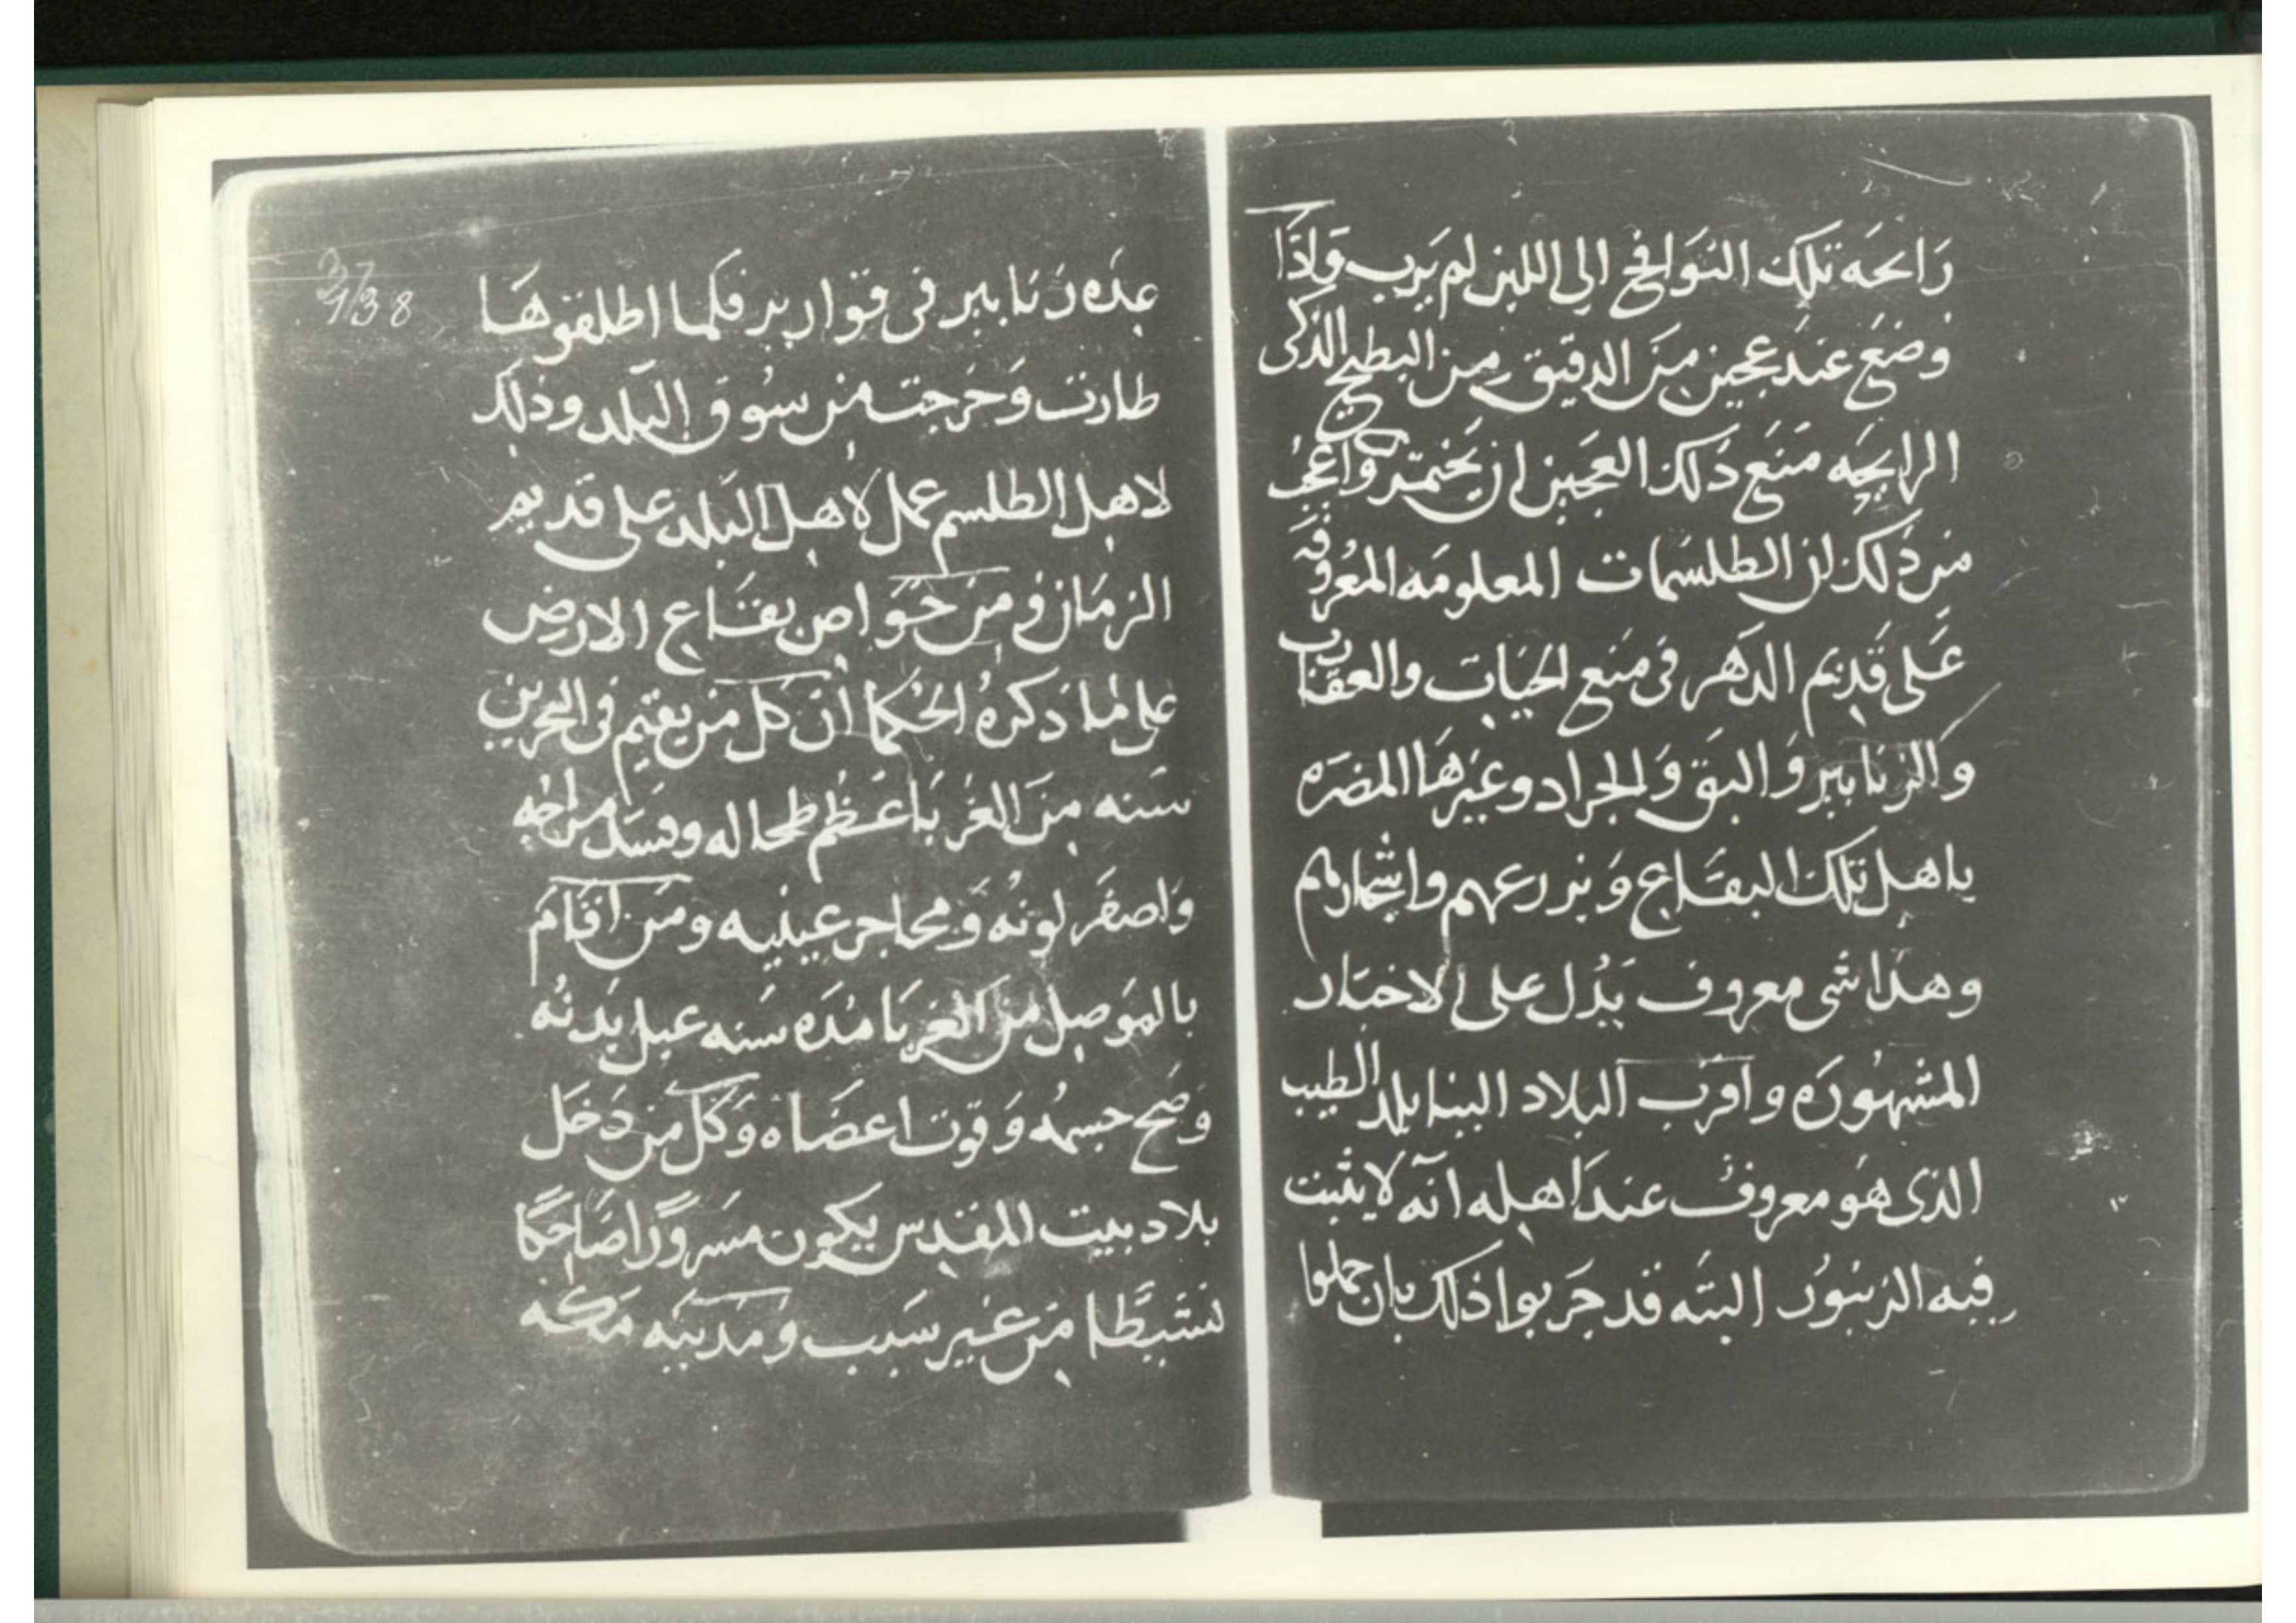 رائحه تلك النوافج الى اللبن لم يرب واذا
وضع عند عجين من الدقيق من البطيخ الذكى
الرايحه منع ذلك العجين ان يختمر واعجب
من ذلك ان الطلسمات المعلومه المعروفه
على قديم الدهر فى منع الحيات والعقارب
والزنابير والبق والجراد وغيرها المضره
باهل تلك البقاع وبزرعهم واثمارهم
وهذا شى معروف يدل على الاخبار
المشهوره واقرب البلاد الينا بلد الطيب
الذى هو معروف عند اهله انه لا يثبت
فيه الزنبور البته قد جربوا ذلك بان حملوا
37
138
عده زنابير فى قوارير فكما اطلقوها
طارت وخرجت من سوق البلد وذلك
لاهل الطلسم عمل لاهل البلد على قديم
الزمان ومن خواص بقاع الارض
على ما ذكره الحكما ان كل من يقيم فى البحرين
سنه من الغربا عظم طحاله وفسد مزاجه
واصفر لونه ومحاجر عينيه ومن اقام
بالموصل من الغربا مده سنه عبل بدنه
وصح جسمه وقوت اعضاه وكل من دخل
بلاد بيت المقدس يكون مسرورا ضاحكا
نشيطا من غير سبب ومدينه مكه